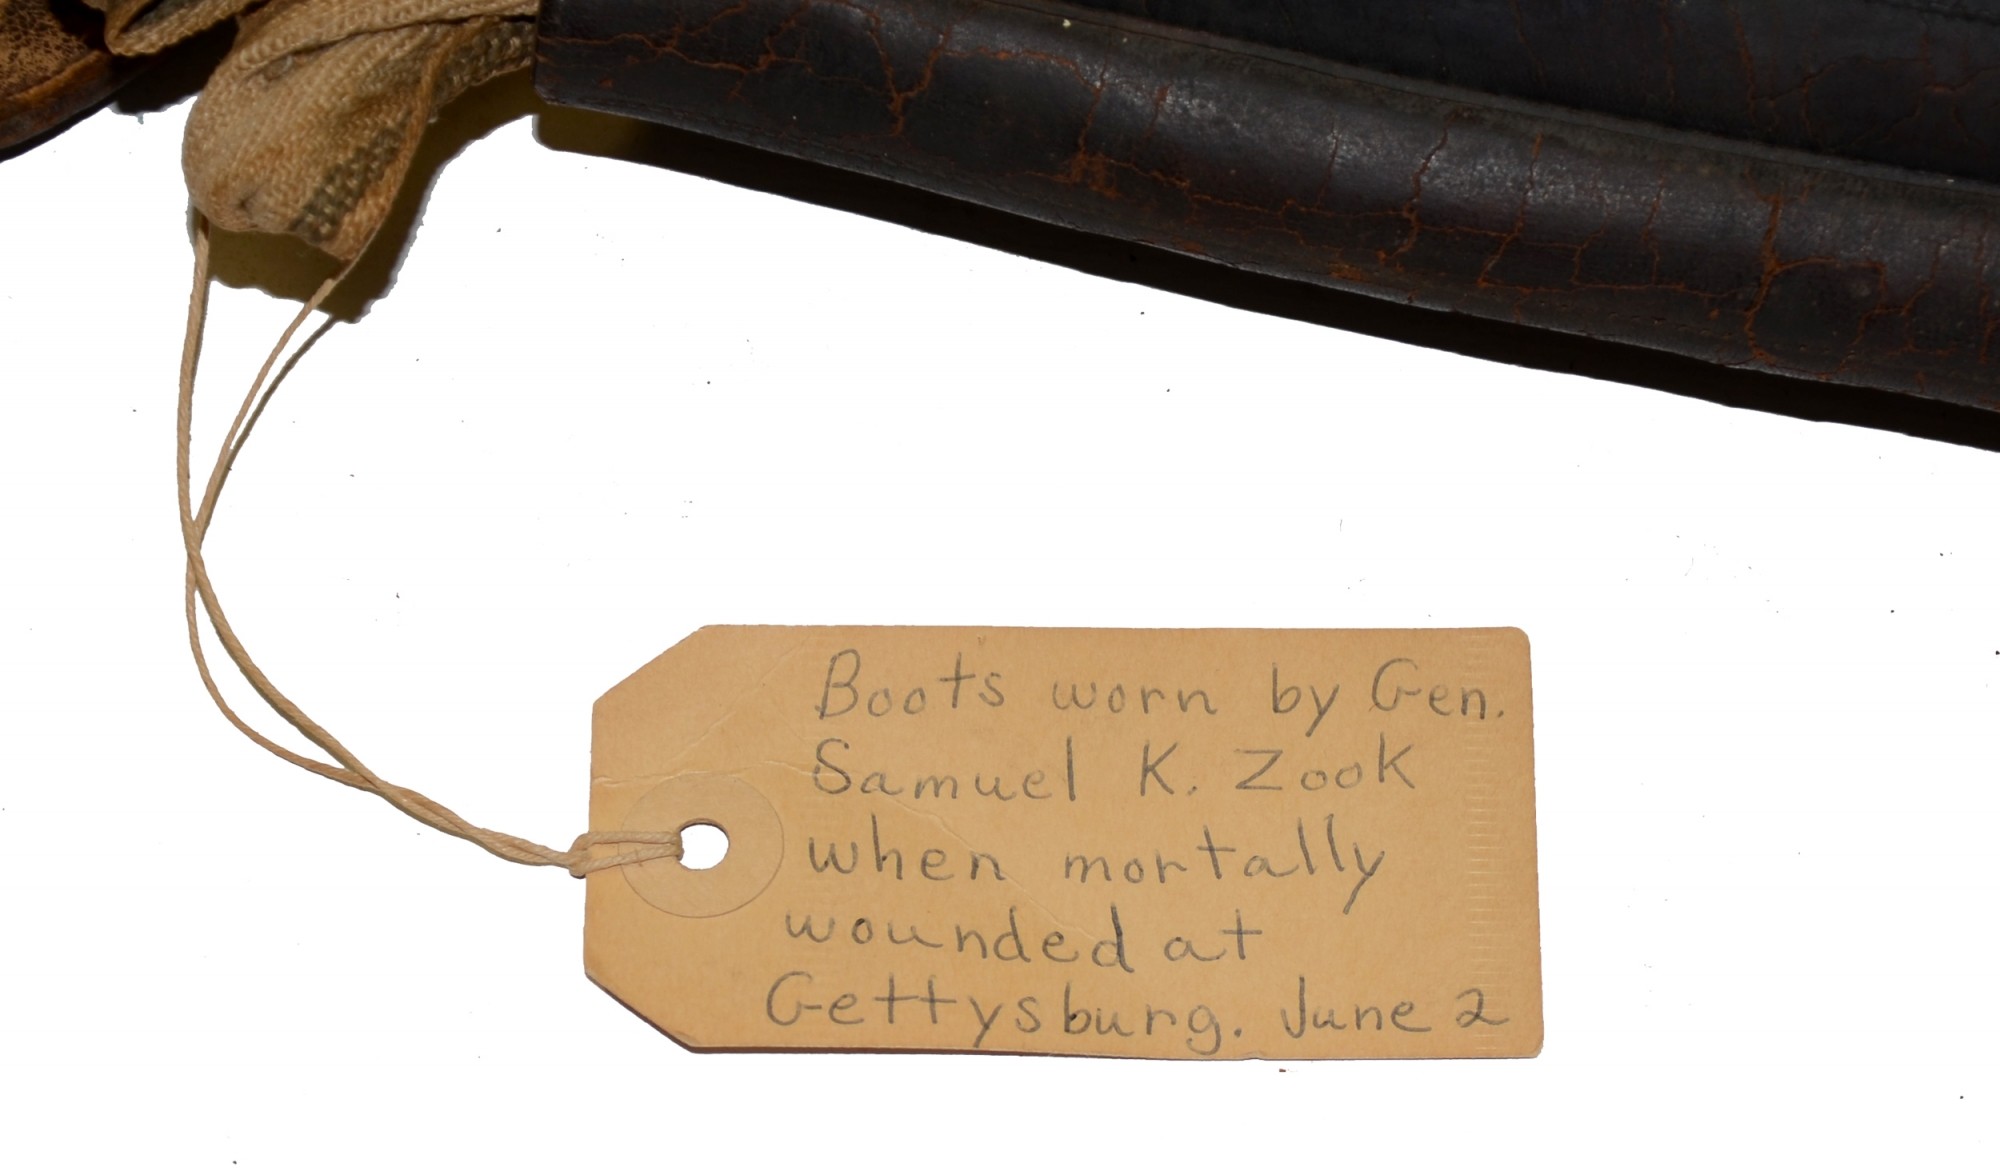 Boots worn by Gen.
Samuel K. Zook
when mortally
wounded at
Gettysburg. June 2